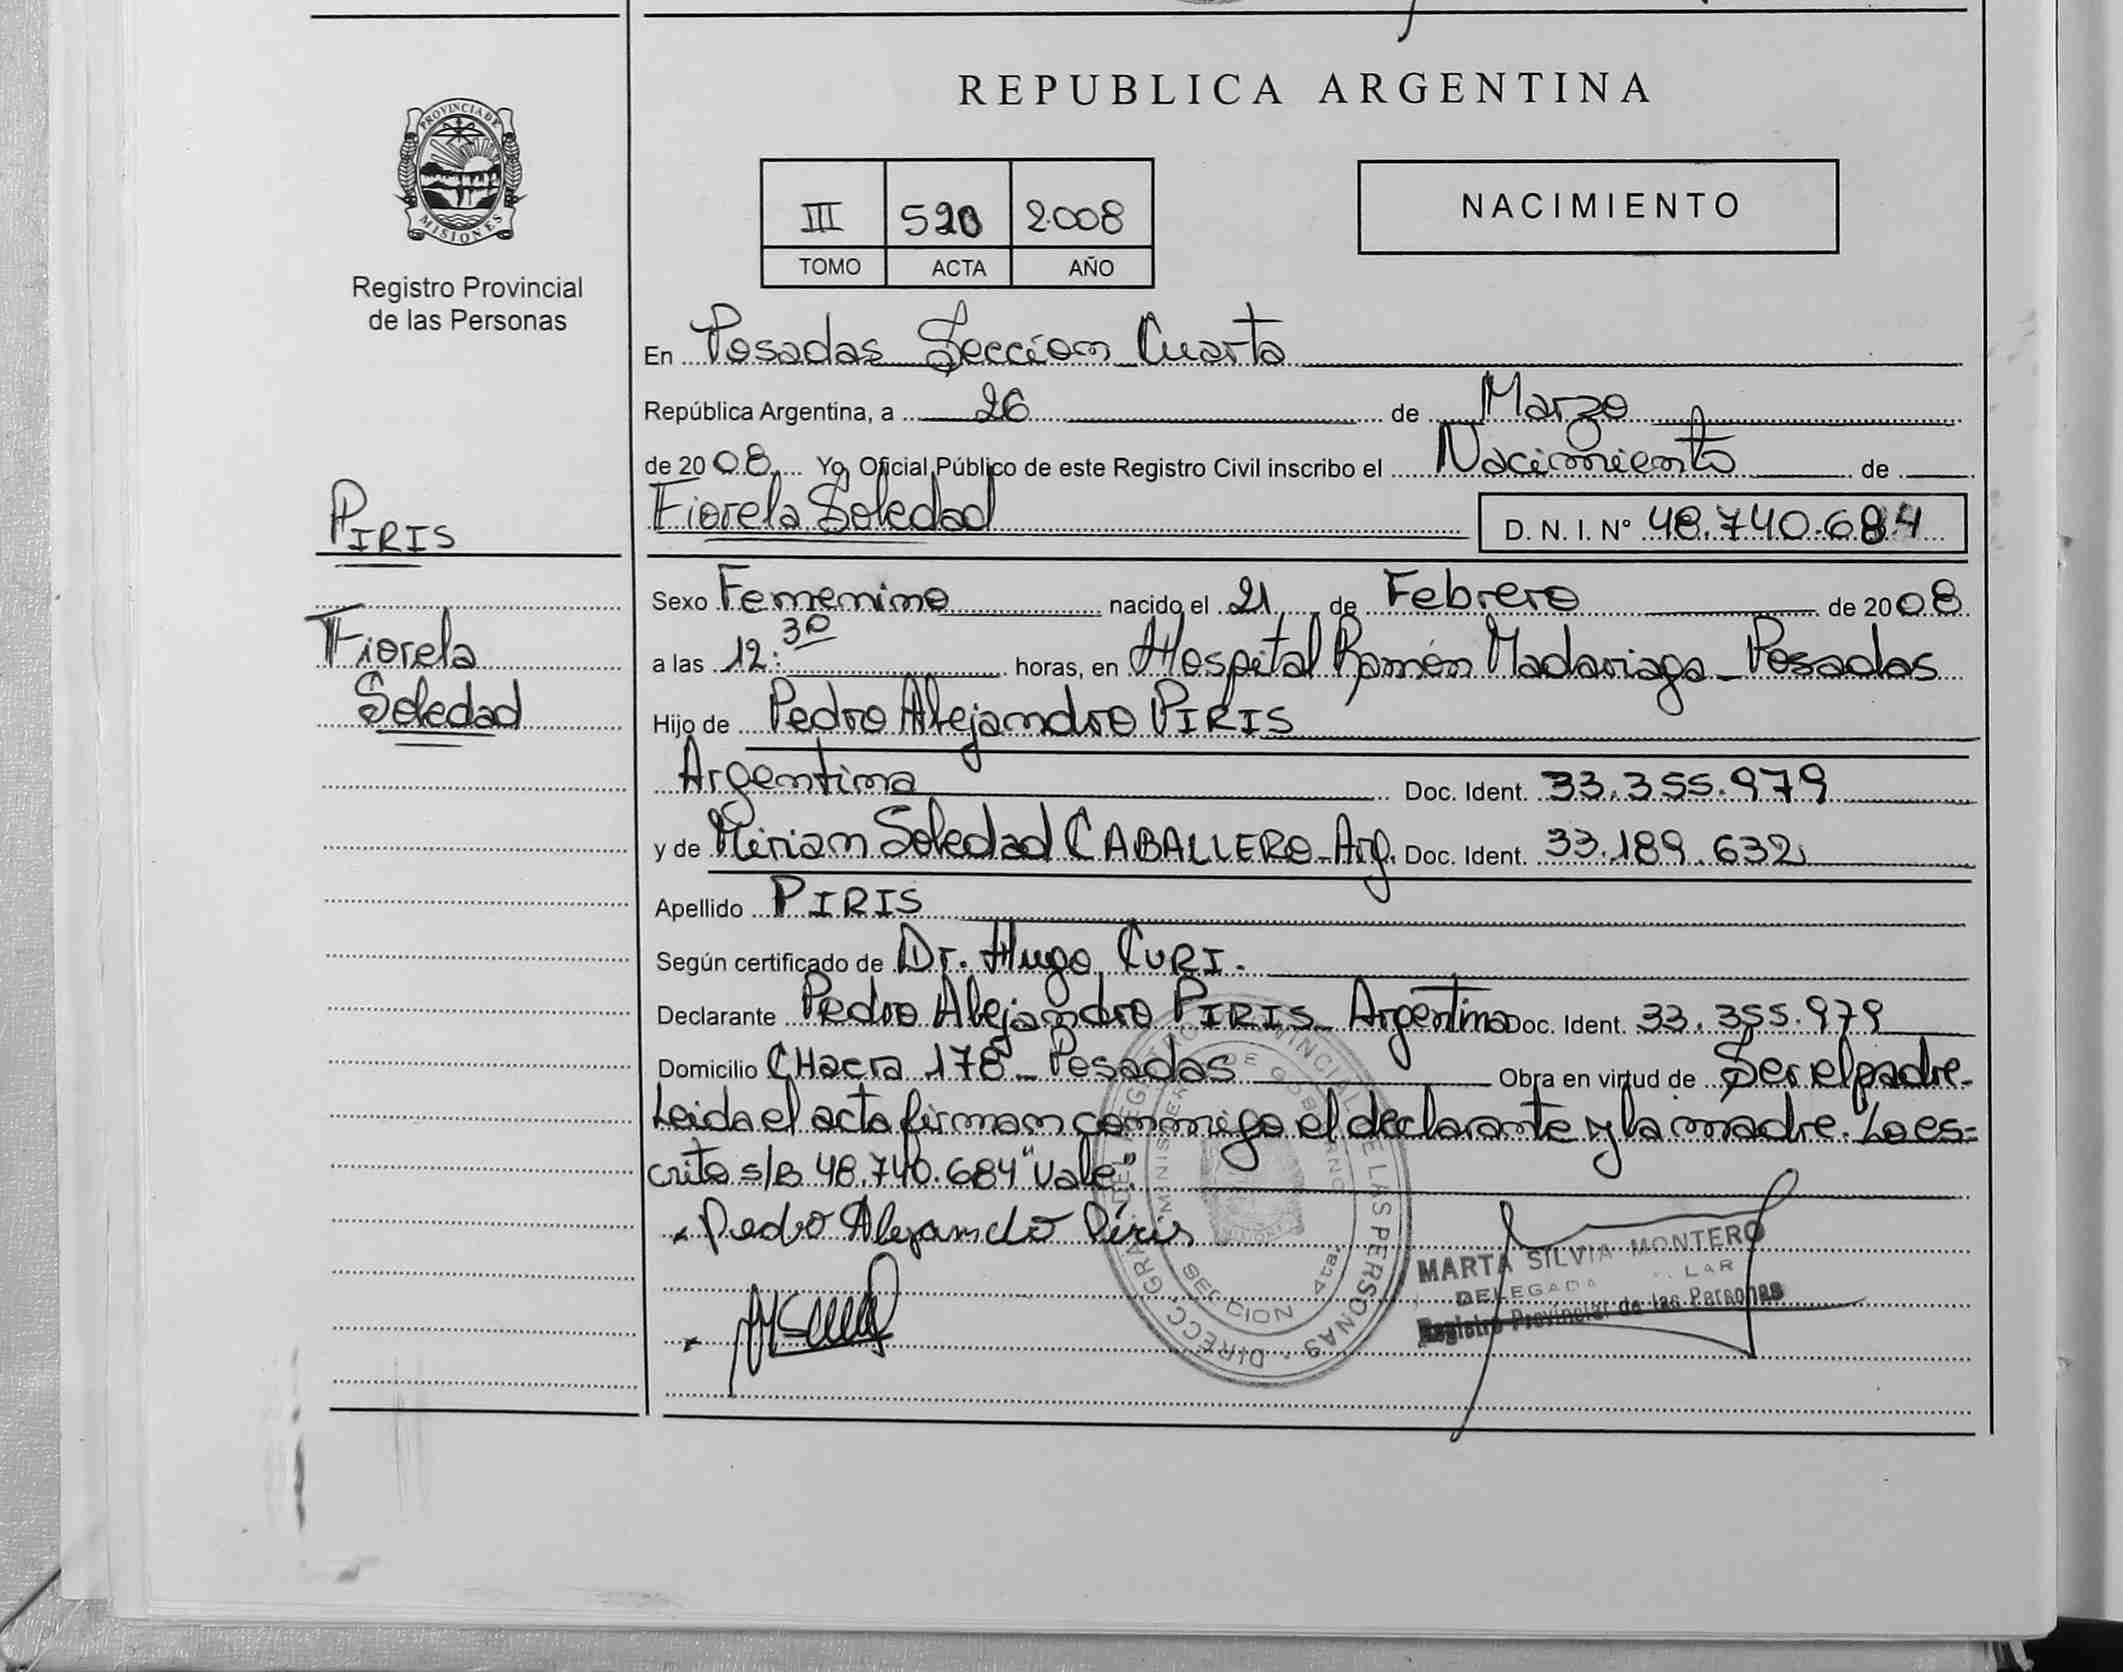 REPUBLICA ARGENTINA
PROVINCIA DE
MISIONES
Registro Provincial
de las Personas
III 520 2008
TOMO ACTA AÑO
NACIMIENTO
En Posadas Sección Cuarta
República Argentina, a 26 de Marzo
de 2008. Yo, Oficial Público de este Registro Civil inscribo el Nacimiento de
Fiorela Soledad D. N. I. N° 48.740.684
PIRIS
Fiorela
Soledad
Sexo Femenino nacido el 21 de Febrero de 2008
a las 12:30 horas, en Hospital Ramón Madariaga - Posadas
Hijo de Pedro Alejandro PIRIS
Argentina Doc. Ident. 33.355.979
y de Miriam Soledad CABALLERO - Arg. Doc. Ident. 33.189.632
Apellido PIRIS
Según certificado de Dr. Hugo CURI.
Declarante Pedro Alejandro PIRIS - Argentina Doc. Ident. 33.355.979
Domicilio CHacra 178 - Posadas Obra en virtud de Ser el padre-
Leida el acta firman conmigo el declarante y la madre. Lo es=
crito s/B 48.740.684 "Vale".
Pedro Alejandro Piris
DIRECC GRAL. DEL REGISTRO PROVINCIAL DE LAS PERSONAS
MINISTERIO DE GOBIERNO
SECCION 4ta.
MARTA SILVIA MONTERO
DELEGADA
Registro Provincial de las Personas